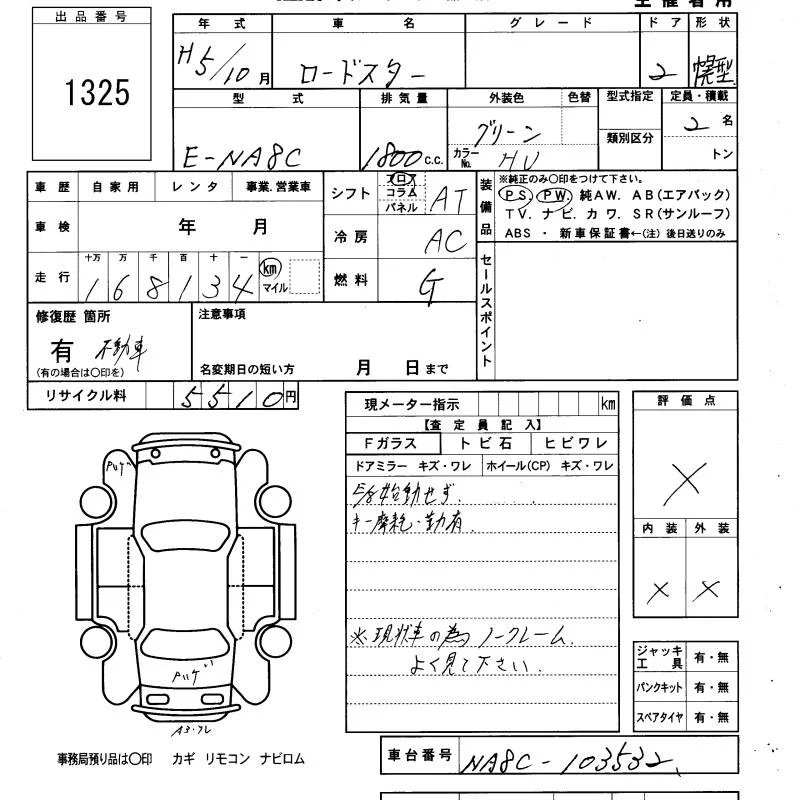 主催者用
出品番号
1325
年式 車名 グレード ドア 形状
H5/10月 ロードスター 2 幌型
型式 排気量 外装色 色替 型式指定 定員・積載
E-NA8C 1800c.c. グリーン 類別区分 2名
カラーNo. HU トン
車歴 自家用 レンタ 事業.営業車 シフト フロア コラム パネル AT
装備品 ※純正のみ〇印をつけて下さい。
PS. PW. 純AW. AB(エアバック)
TV. ナビ. カワ. SR(サンルーフ)
ABS ・ 新車保証書←(注) 後日送りのみ
車検 年 月 冷房 AC
走行 十万 万 千 百 十 一
168134 km マイル 燃料 G
セールスポイント
修復歴 箇所 注意事項
有 不動車
(有の場合は〇印を) 名変期日の短い方 月 日まで
リサイクル料 5510円
現メーター指示 km
【査定員記入】
Fガラス トビ石 ヒビワレ
ドアミラー キズ・ワレ ホイール(CP) キズ・ワレ
始動せず.
キー摩耗・勤有
※現状車の為ノークレーム.
よく見て下さい.
評価点
×
内装 外装
× ×
ジャッキ工具 有・無
パンクキット 有・無
スペアタイヤ 有・無
A3・ワレ
事務局預り品は〇印 カギ リモコン ナビロム
車台番号 NA8C-103532